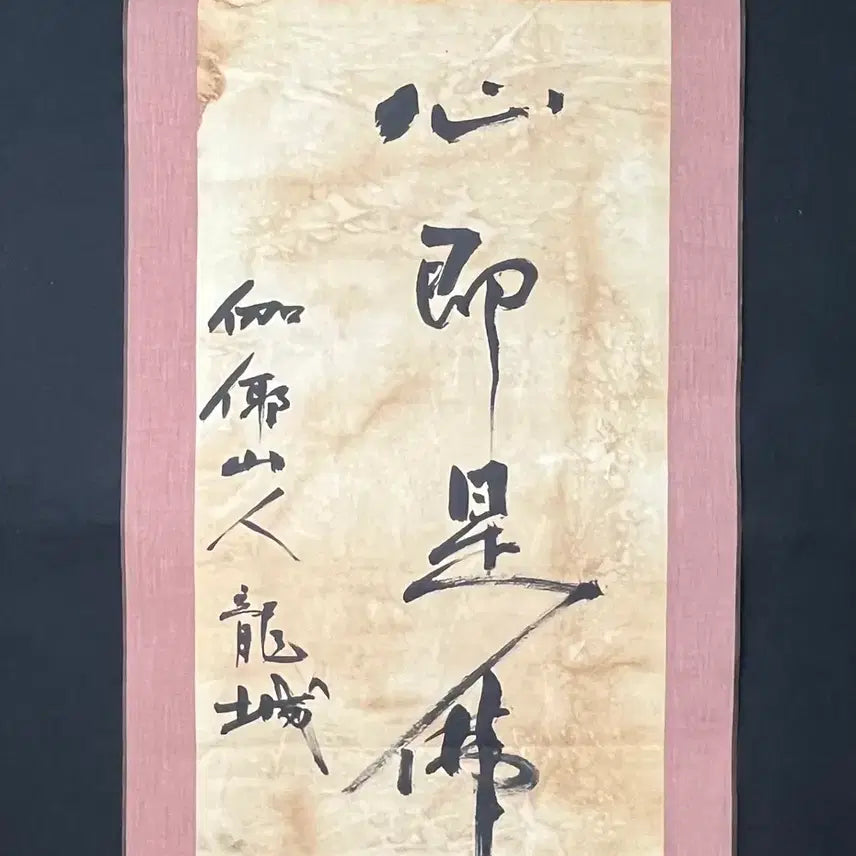 心即是佛
伽倻山人 龍城